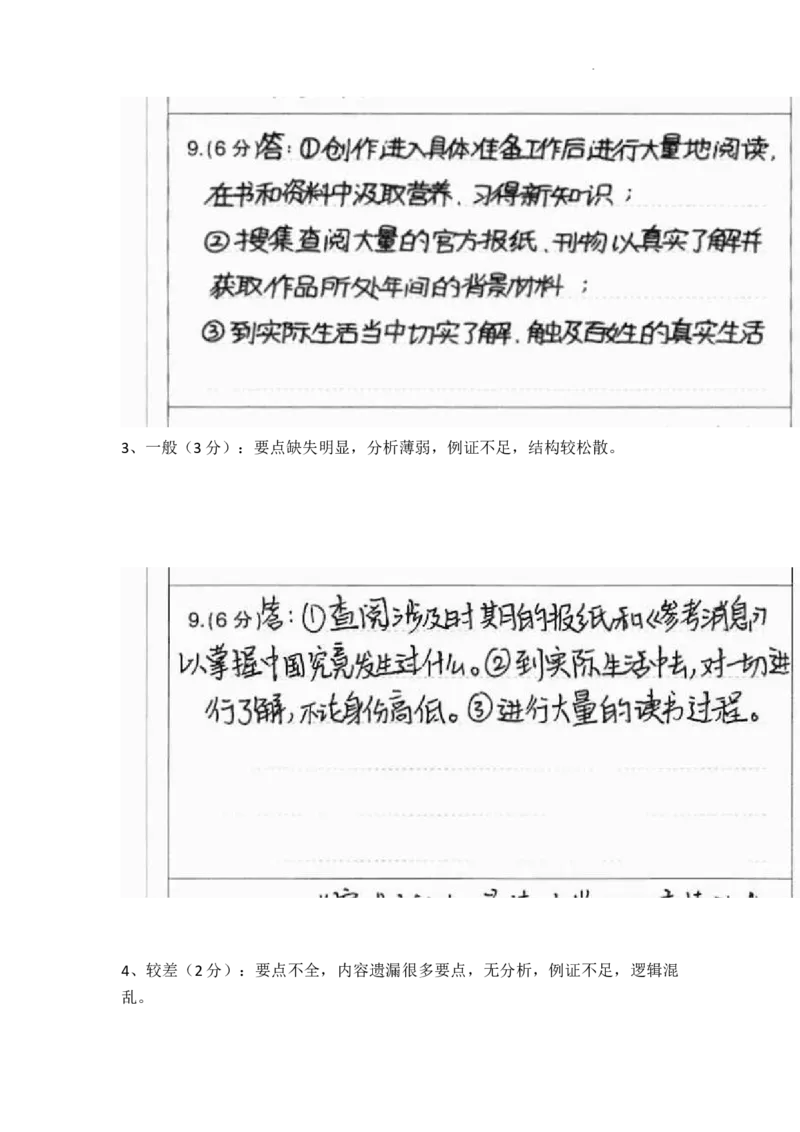 9.(6分)答：①创作进入具体准备工作后进行大量地阅读，
在书和资料中汲取营养、习得新知识；
②搜集查阅大量的官方报纸、刊物以真实了解并
获取作品所处年间的背景材料；
③到实际生活当中切实了解、触及百姓的真实生活
3、一般（3分）：要点缺失明显，分析薄弱，例证不足，结构较松散。
9.(6分)答：①查阅涉及时其目的报纸和《参考消息》
以掌握中国究竟发生过什么。②到实际生活中去，对一切进
行了解，不论身份高低。③进行大量的读书过程。
4、较差（2分）：要点不全，内容遗漏很多要点，无分析，例证不足，逻辑混
乱。